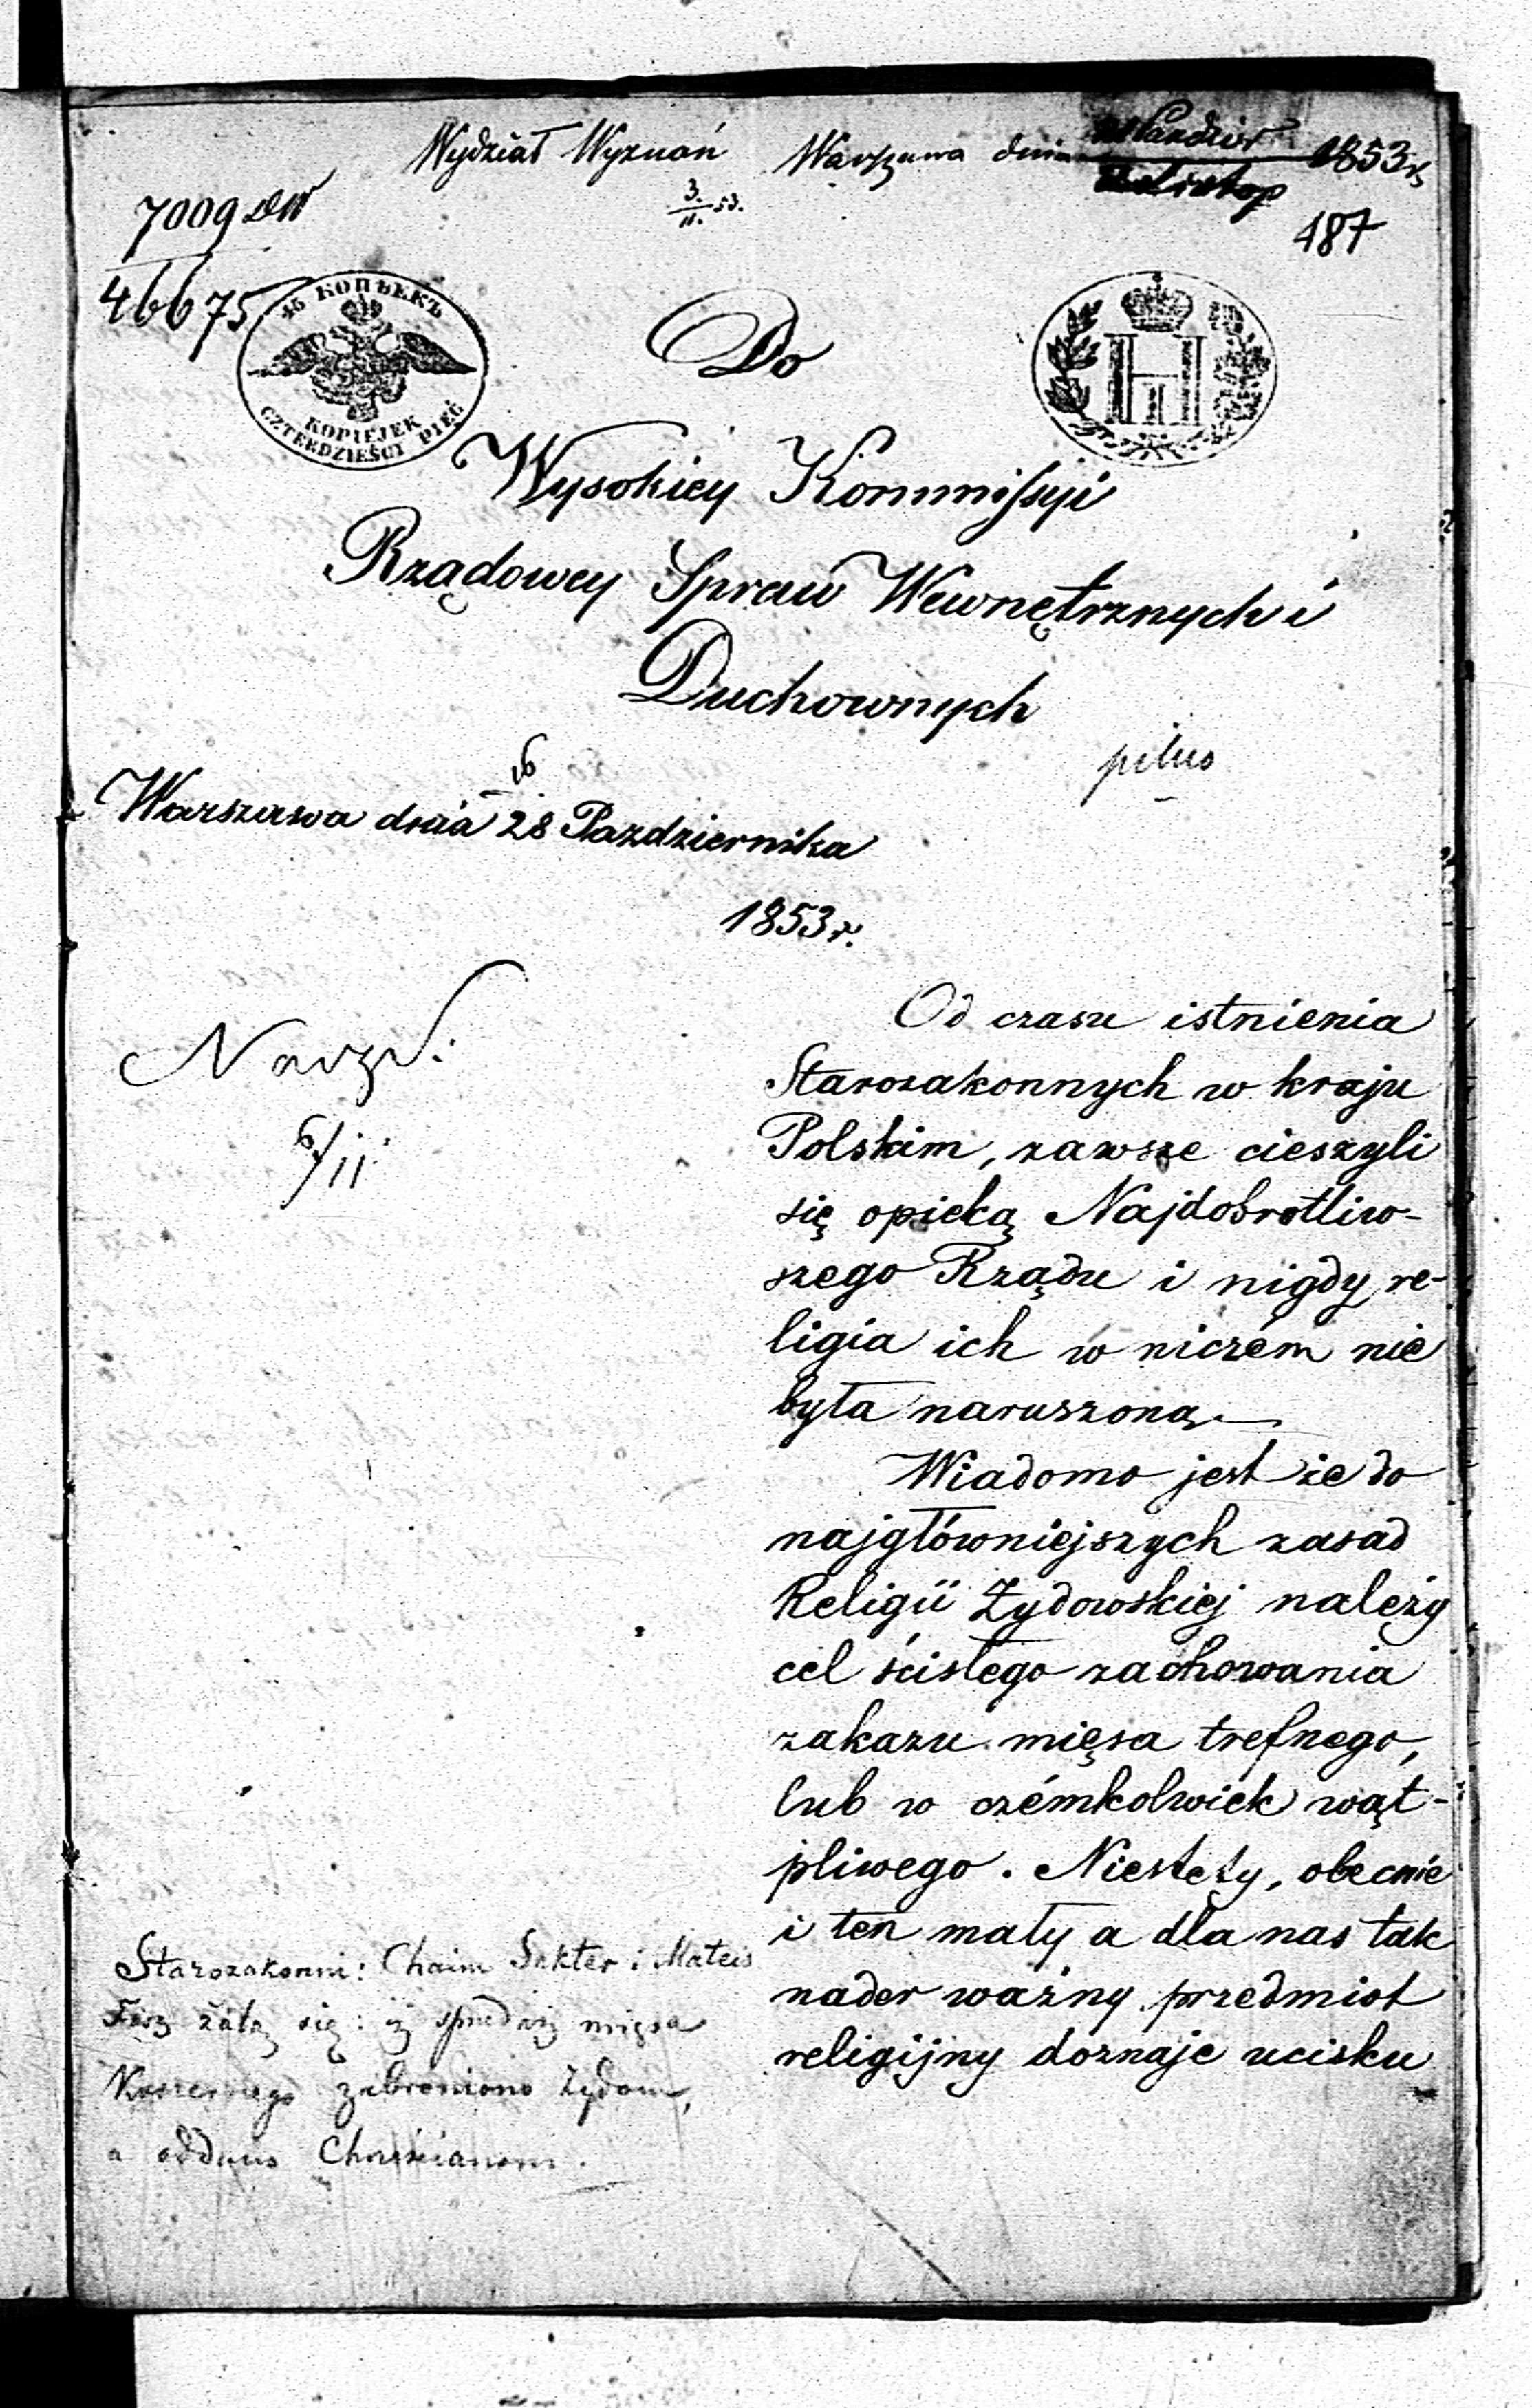 Wydział Wyznań Warszawa dnia Paździer 1853 r
Listop
3/11. 53.
187
7009 DW
46675
45 КОПѢЕКЪ
KOPIEJEK
CZTERDZIEŚCI PIĘĆ
H
Do
Wysokiey Kommissyi
Rządowey Spraw Wewnętrznych i
Duchownych
pilno
16
Warszawa dnia 28 Pazdziernika
1853 r.
6/11
Od czasu istnienia
Starozakonnych w kraju
Polskim, zawsze cieszyli
się opieką Najdobrotliw-
szego Rządu i nigdy re-
ligia ich w niczém nie
była naruszoną.—
Wiadomo jest że do
najgłówniejszych zasad
Religii Żydowskiej należy
cel ścisłego zachowania
zakazu mięsa trefnego,
lub w czémkolwiek wąt-
pliwego. Niestety, obecnie
i ten mały a dla nas tak
nader ważny przedmiot
religijny doznaje ucisku
Starozakonni: Chaim Sakter i Mateis
Fisz żalą się: iż sprzedaż mięsa
Koszernego zabroniono Żydom,
a oddano Chrześcianom.